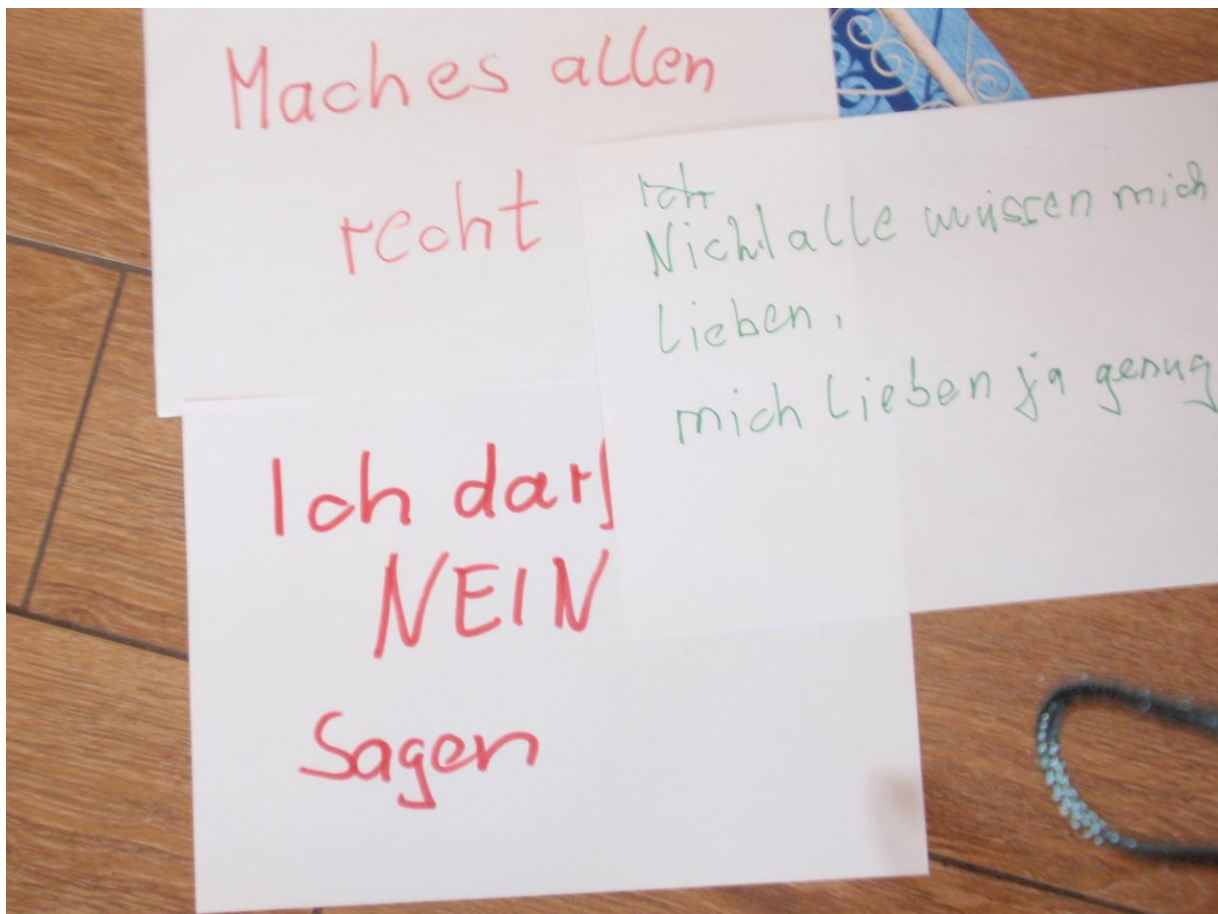 Mach es allen
recht
Ich
Nicht alle müssen mich
lieben,
mich lieben ja genug
Ich darf
NEIN
Sagen